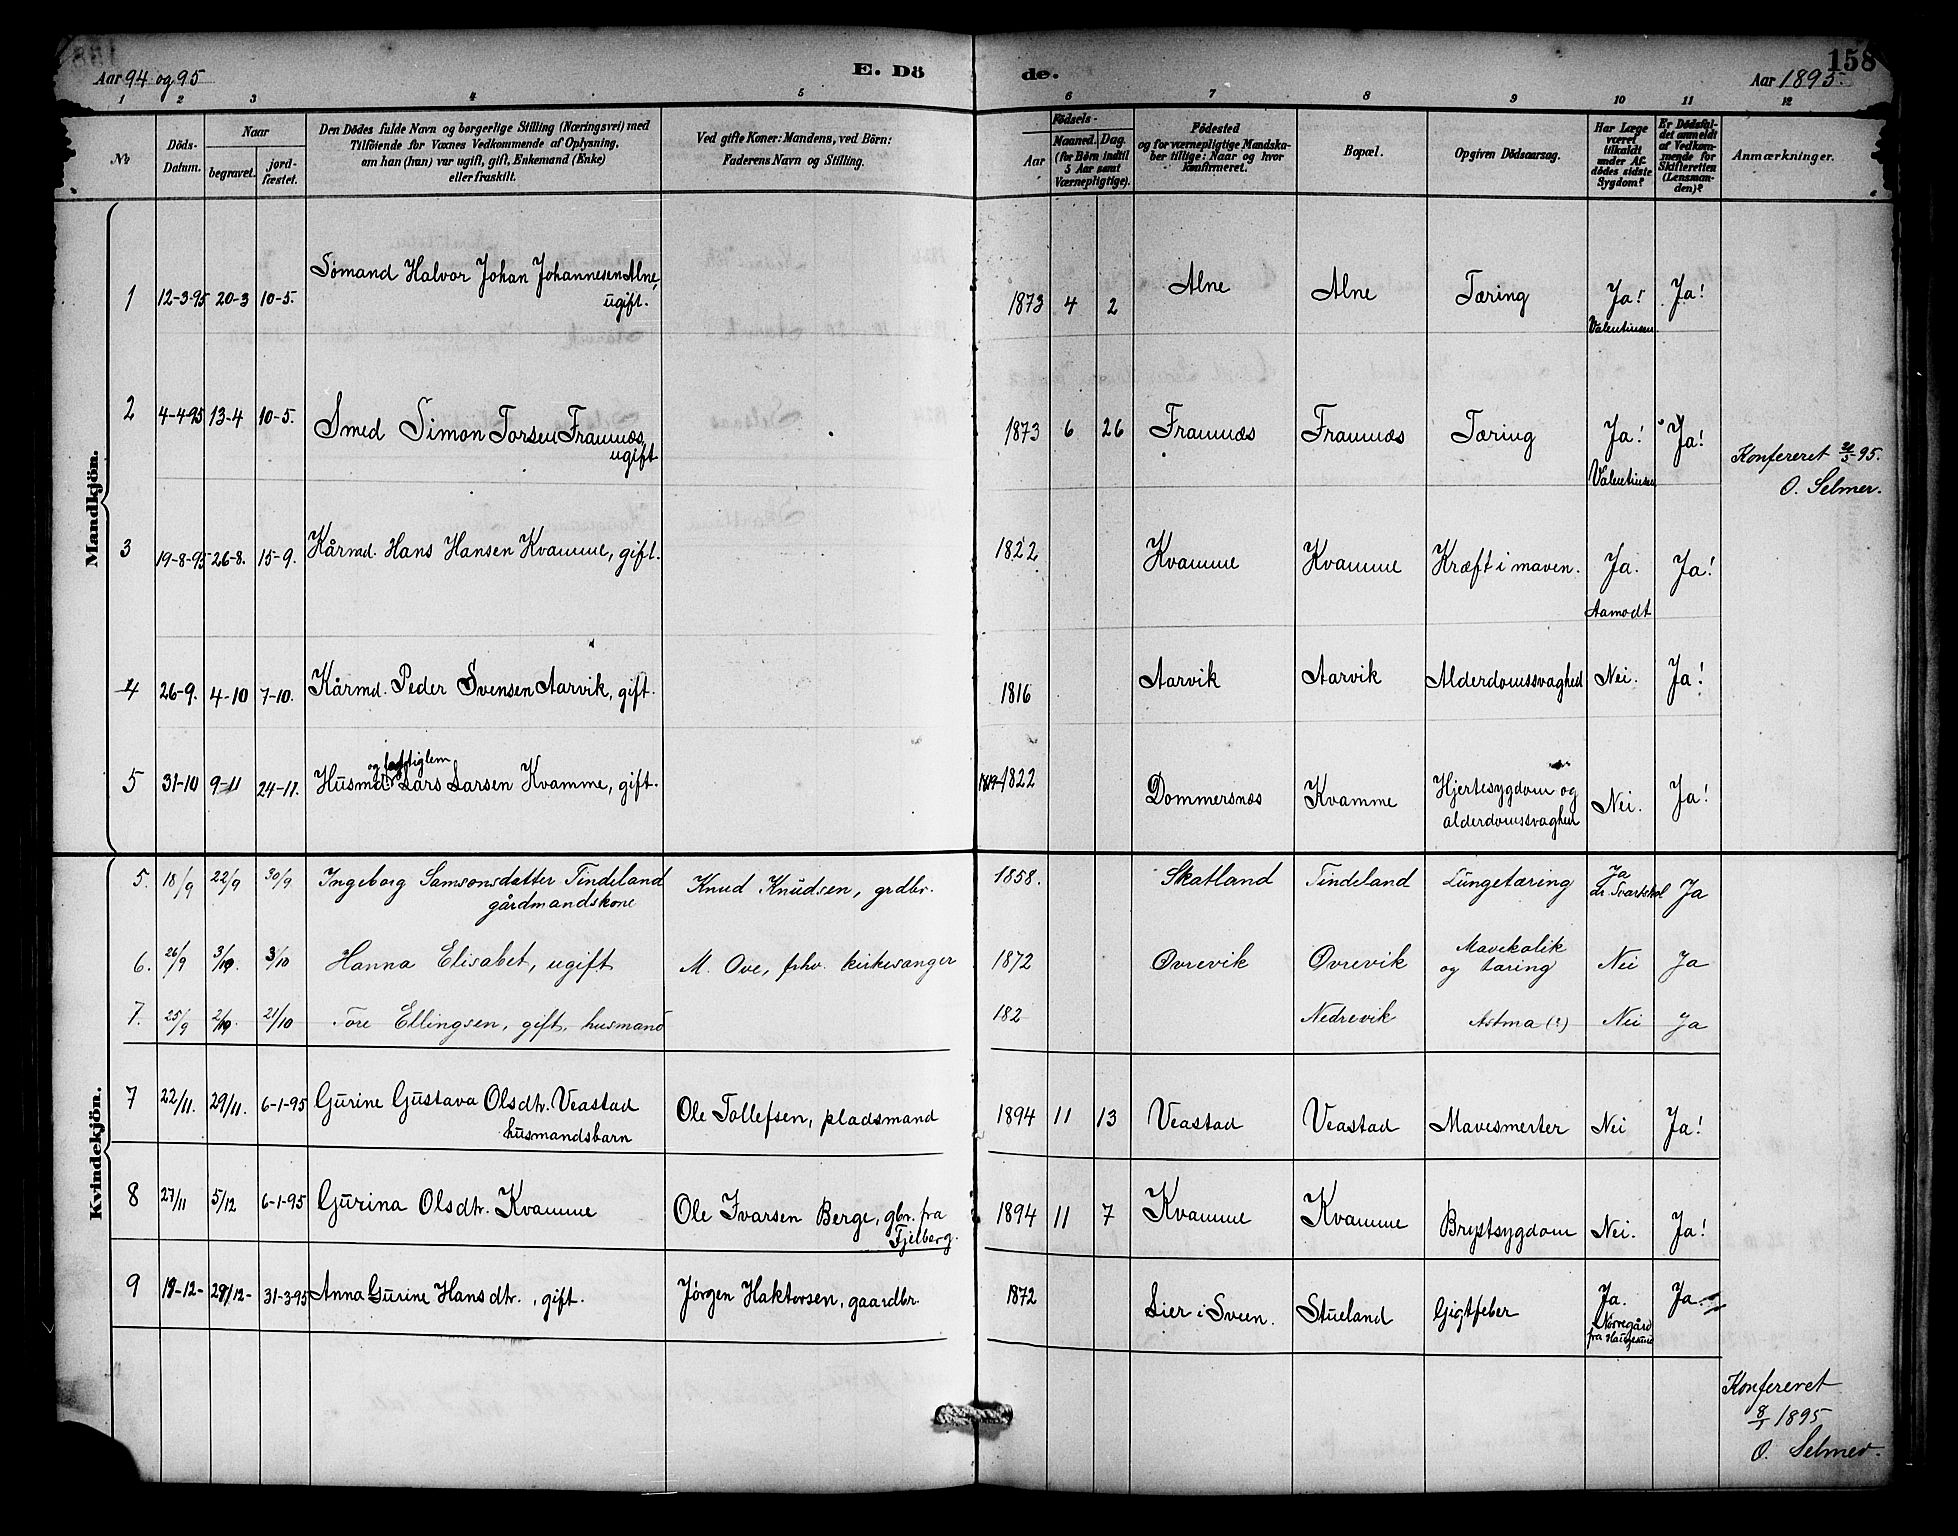 Aar 94 og 95
E. Dö
de.
Aar 1895.
158
1 2 3 4 5 6 7 8 9 10 11 12
No
Döds-
Datum.
Naar
begravet.
jord-
fæstet.
Den Dödes fulde Navn og borgerlige Stilling (Næringsvei) med
Tilföiende for Voxnes Vedkommende af Oplysning,
om han (hun) var ugift, gift, Enkemand (Enke)
eller fraskilt.
Ved gifte Koner: Mandens, ved Börn:
Faderens Navn og Stilling.
Födsels-
Aar
Maaned.
Dag.
(for Börn indtil
5 Aar samt
Værnepligtige).
Födested
og for værnepligtige Mandska-
ber tillige: Naar og hvor
konfirmeret.
Bopæl.
Opgiven Dödsaarsag.
Har Læge
været
tilkaldt
under Af-
dödes sidste
Sygdom?
Er Dödsfal-
det anmeldt
af Vedkom-
mende for
Skifteretten
(Lensman-
den)?
Anmærkninger.
Mandkjön.
1 12-3-95 20-3 10-5. Sømand Halvor Johan Johannesen Alne,
ugift.
1873 4 2 Alne Alne Tæring Ja! Ja!
Valentinsen
2 4-4-95 13-4 10-5. Smed Simon Torsen Framnæs,
ugift
1873 6 26 Framnæs Framnæs Tæring Ja! Ja!
Valentinsen
Konfereret 20/5 95.
O. Selmer.
3 19-8-95 26-8. 15-9. Kårmd. Hans Hansen Kvamme, gift.
1822 Kvamme Kvamme Kræft i maven. Ja. Ja!
Aamodt
4 26-9. 4-10 7-10. Kårmd. Peder Svensen Aarvik, gift.
1816 Aarvik Aarvik Alderdomssvaghed Nei. Ja!
og fattiglem
5 31-10 9-11 24-11. Husmd. Lars Larsen Kvamme, gift.
1819-1822 Dommersnæs Kvamme Hjertesygdom og
alderdomssvaghed Nei. Ja!
Kvindekjön.
5. 18/9 22/9 30/9 Ingeborg Samsonsdatter Tindeland
gårdmandskone
Knud Knudsen, grdbr.
1858. Skatland Tindeland Lungetæring Ja
dr. Svartskol Ja
6. 26/9 3/10. 3/10 Hanna Elisabet, ugift
M. Ove, fhv. kirkesanger
1872 Øvrevik Øvrevik Mavekolik
og tæring Nei Ja
7. 25/9 2/10. 21/10 Tore Ellingsen, gift, husmand
182 Nedrevik Astma (?) Nei Ja
7 22/11. 29/11. 6-1-95 Gurine Gustava Olsdtr. Veastad
husmandsbarn
Ole Tollefsen, pladsmand
1894 11 13 Veastad Veastad Mavesmerter Nei Ja!
8 27/11 5/12 6-1-95 Gurina Olsdtr. Kvamme
Ole Ivarsen Berge, gbr. fra
Fjelberg.
1894 11 7 Kvamme Kvamme Brystsygdom Nei. Ja!
9 18-12- 29/12- 31-3-95 Anna Gurine Hansdtr., gift.
Jørgen Haktorsen, gaardbr.
1872 Lier i Sveen. Stueland Gigtfeber Ja. Ja.
Norregård
fra Haugesund
Konfereret
8/1 1895
O. Selmer.